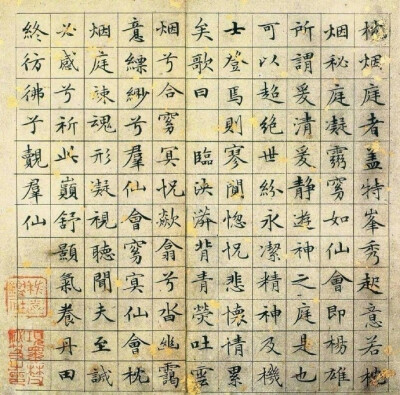 枕烟庭者盖特峯秀起意若枕
烟秘庭凝窅如仙會即楊雄
所謂爰清爰静遊神之庭是也
可以超絕世紛永潔精神及機
士登焉則寥闃惚怳悲懷情累
矣歌曰臨泱漭背青熒吐雲
烟兮合窅冥怳欻翕兮沓幽靄
意縹緲兮羣仙會窅冥仙會枕
烟庭竦魂形凝視聽聞夫至誠
必感兮祈此巔舒顥氣養丹田
終彷彿兮覿羣仙